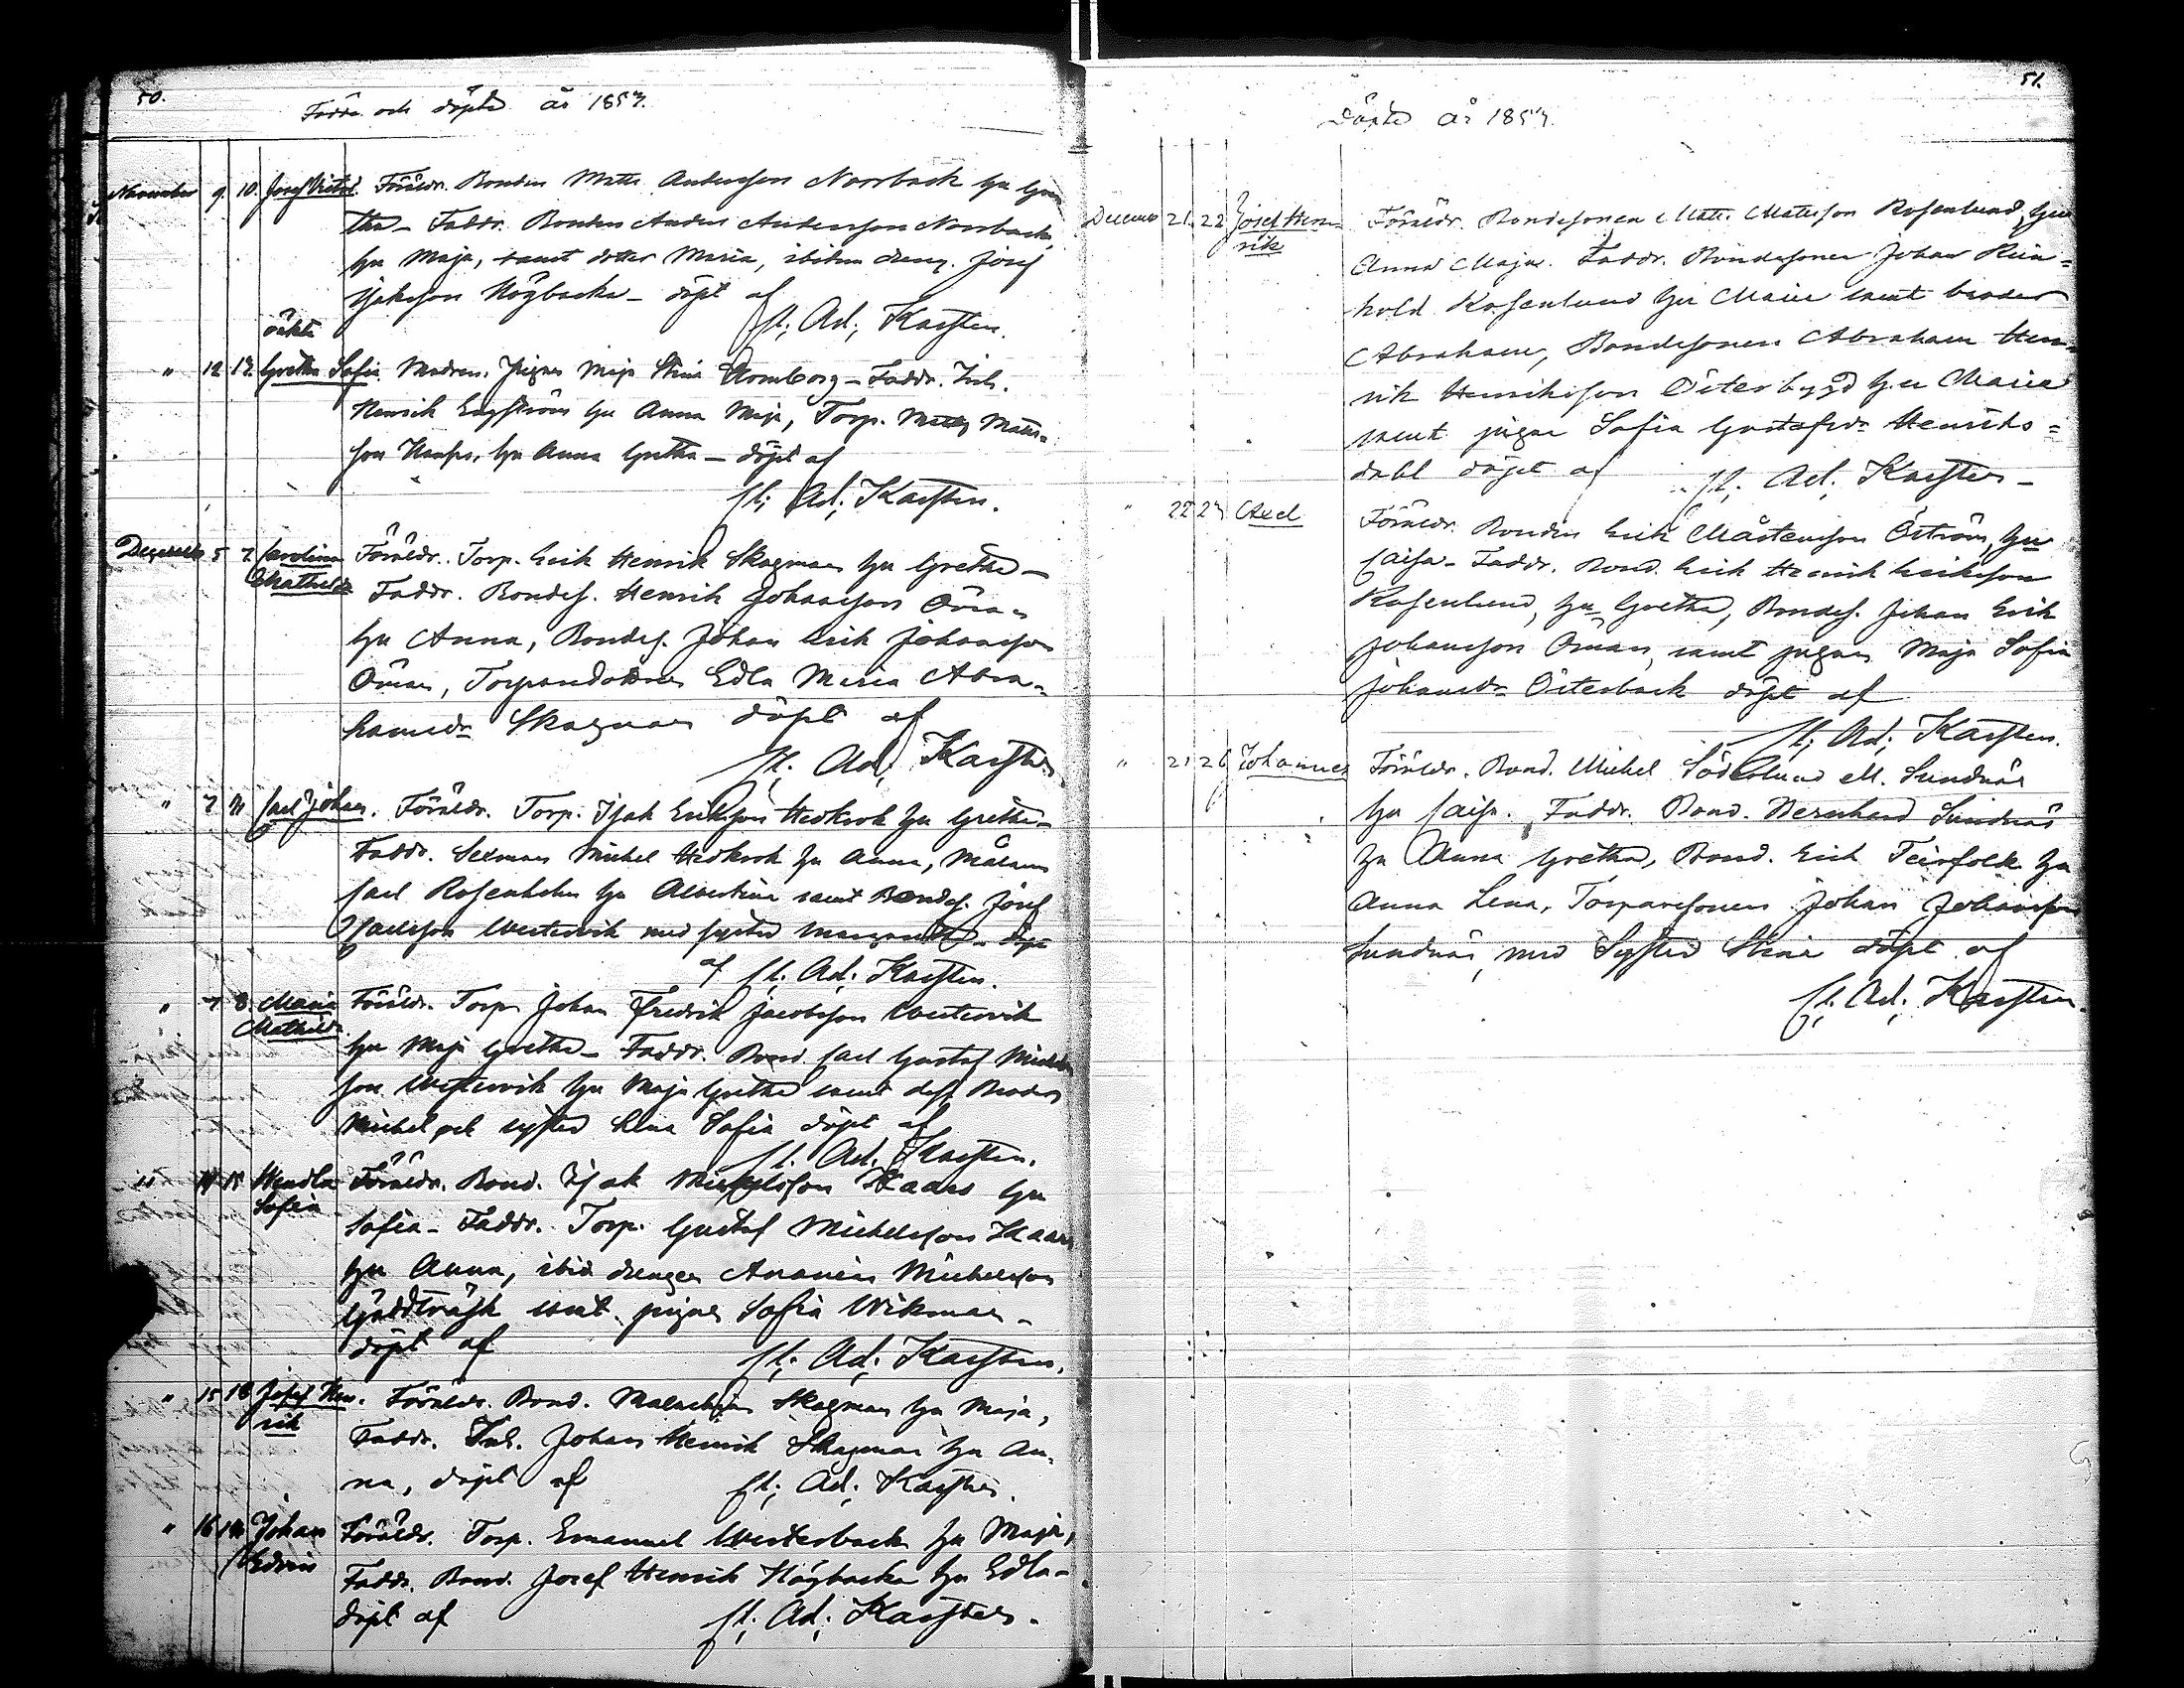 50.
Födde och döpte år 1857.
November 9. 10. Josef Victor. Föräldr. Bonden Matts Andersson Norrback hu Gre
tha - Faddr. Bonden Anders Andersson Norrback
hu Maja, samt dotter Maria, ibidem dreng. Josef
Isaksson Högbacka - döpt af
Fr. Ad. Karsten.
oäkta
" 12 Gretha Sofia. Modren. Pigan Maja Stina - Faddr. Inh.
Henrik Engström hu Anna Maja, Torp. Matts Matts-
son hu Anna Gretha - döpt af
Fr. Ad. Karsten.
December 5 7 Carolina Föräldr. Torp. Erik Henrik Skagman hu Gretha -
Mathilda Faddr. Bondes. Henrik Johansson
hu Anna, Bondes. Johan Erik Johansson
Öman, Torparedottren Edla Maria Abra-
hamsdr Skagman döpt af
Fr. Ad. Karsten
" 7 11 Carl Johan. Föräldr. Torp. Isak Eriksson Hedkrok hu Gretha -
Faddr. Sexman Michel Hedkrok hu Anna, Målaren
Carl Rosenholm hu Albertina samt Bondes. Josef
Westervik med syster Margaretha - döpt
af Fr. Ad. Karsten.
" 7 8. Maria Föräldr. Torp Johan Fredrik Jacobsson Westervik
Mathilda hu Maja Gretha - Faddr. Bond. Carl Gustaf Michels
son Westervik hu Maja Gretha samt dess Broder
Michel och syster Lena Sofia döpt af
Fr. Ad. Karsten.
" 14 15 Wendla Föräldr. Bond. Isak Michelsson Kaars hu
Sofia Sofia - Faddr. Torp. Gustaf Michelsson Kaars
hu Anna, ibid drengen Ananias Michelsson
Gäddträsk samt pigan Sofia Wikman -
döpt af
Fr. Ad. Karsten.
" 15 18 Josef Hen. Föräldr. Bond. Malachias Skagman hu Maja,
rik Faddr. Inh. Johan Henrik Skagman hu An-
na, döpt af Fr. Ad. Karsten.
" 16 Johan Föräldr. Torp. Emanuel Westerback hu Maja,
Edvin Faddr. Bond. Josef Henrik Högbacka hu Edla -
döpt af Fr. Ad. Karsten.
51.
Döpte år 1857.
December 21. 22 Josef Hen- Föräldr. Bondesonen Matts Mattsson Rosenlund, hu
rik Anna Maja. Faddr. Bondesonen Johan Rein=
hold Rosenlund hu Maria samt broder
Abraham, Bondesonen Abraham Hen-
rik Henriksson Österbygd hu Maria
samt pigan Sofia Gustafsdr Henriks=
dahl döpt af Fr. Ad. Karsten -
" 22 27 Axel Föräldr. Bonden Erik Mårtensson Öström, hu
Caisa - Faddr. Bond. Erik Henrik Eriksson
Rosenlund, hu Gretha, Bondes. Johan Erik
Johansson Öman, samt pigan Maja Sofia
Johansdr Österback döpt af
Fr. Ad. Karsten.
" 21 26 Johannes Föräldr. Bond. Michel Söderlund ell. Sundnäs
hu Caisa. Faddr. Bond. Bernhard Sundnäs
hu Anna Gretha, Bond. Erik Teirfolk hu
Anna Lena, Torparesonen Johan Johansson
Sundnäs, med Syster Stina döpt af
Fr. Ad. Karsten.